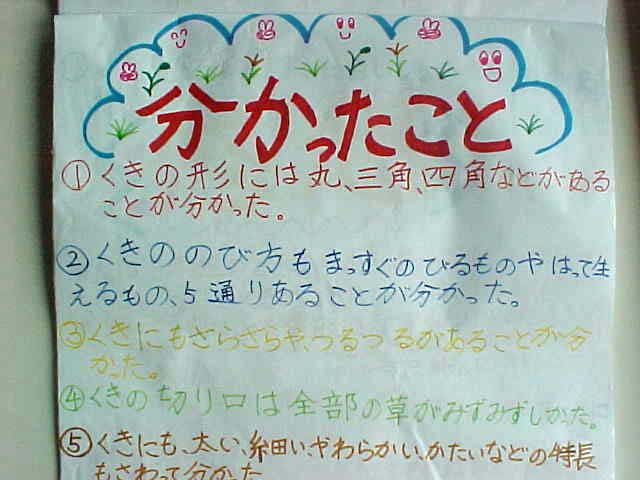 分かったこと
①くきの形には丸、三角、四角などがある
ことが分かった。
②くきののび方もまっすぐのびるものやはって生
えるもの、5通りあることが分かった。
③くきにもざらざらや、つるつるがあることが分
かった。
④くきの切り口は全部の草がみずみずしかった。
⑤くきにも、太い、細い、やわらかい、かたいなどの特長
もさわって分かった